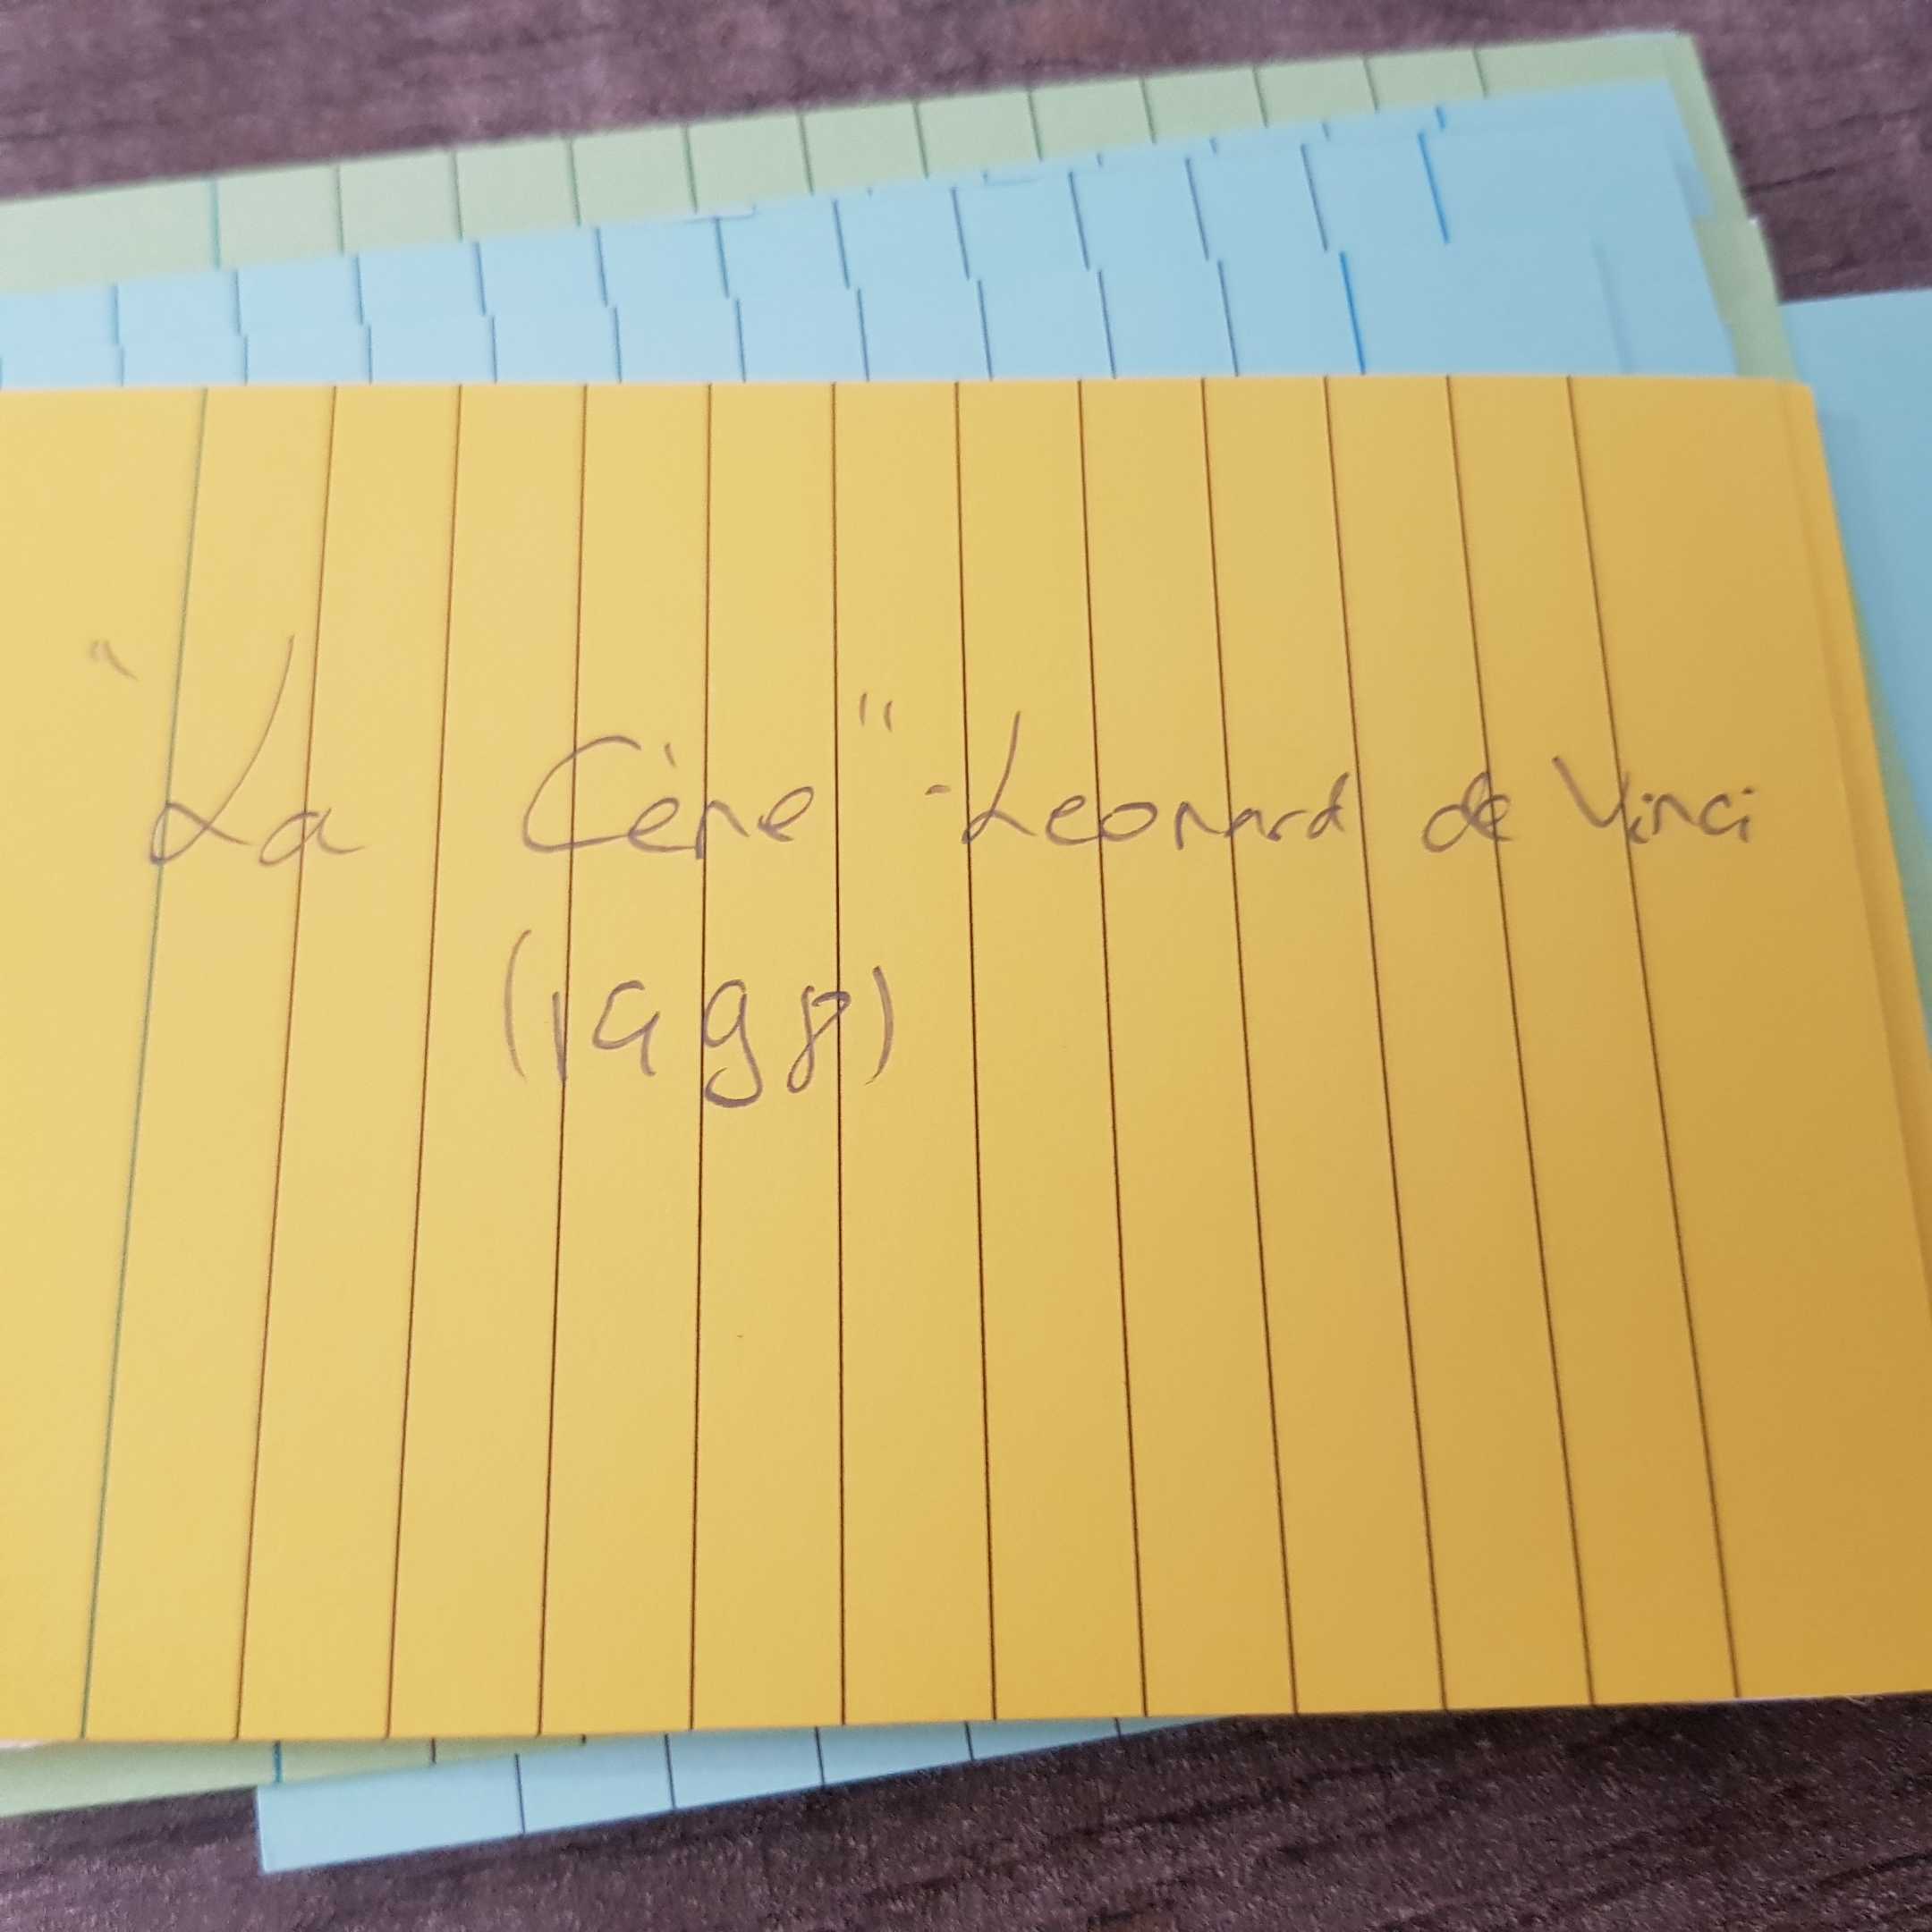 "La Cène" - Leonard de Vinci
(1498)